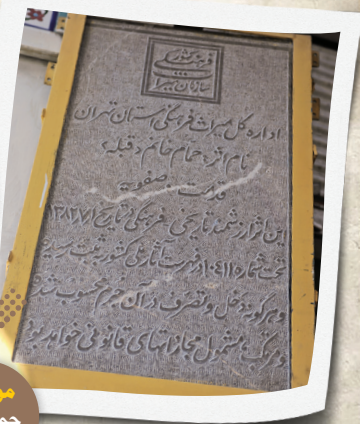 سازمان میراث
فرهنگی کشور
اداره کل میراث فرهنگی استان تهران
نام اثر: حمام خانم «قبله»
قدمت: صفویه
این اثر ارزشمند تاریخی - فرهنگی در تاریخ ۱۳۸۲/۷/۱
تحت شماره ۱۰۴۱۱ در فهرست آثار ملی کشور به ثبت رسیده
و هرگونه دخل و تصرف در آن جرم محسوب شده
و مرتکب مشمول مجازاتهای قانونی خواهد بود